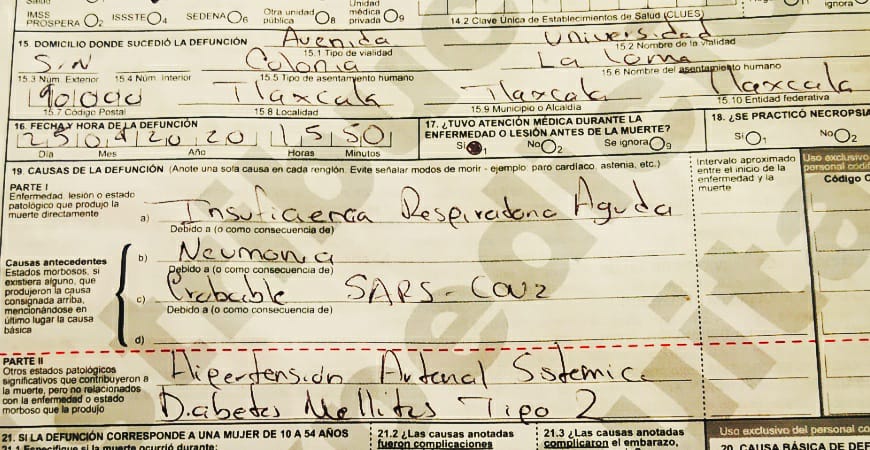 IMSS PROSPERA 2 ISSSTE 4 SEDENA 6 Otra unidad pública 8 Unidad médica privada 9
14.2 Clave Única de Establecimientos de Salud (CLUES)
ignora
15. DOMICILIO DONDE SUCEDIÓ LA DEFUNCIÓN Avenida Universidad
15.1 Tipo de vialidad 15.2 Nombre de la vialidad
S.N Colonia La Loma
15.3 Núm. Exterior 15.4 Núm. Interior 15.5 Tipo de asentamiento humano 15.6 Nombre del asentamiento humano
90000 Tlaxcala Tlaxcala Tlaxcala
15.7 Código Postal 15.8 Localidad 15.9 Municipio o Alcaldía 15.10 Entidad federativa
16. FECHA Y HORA DE LA DEFUNCIÓN 17. ¿TUVO ATENCIÓN MÉDICA DURANTE LA ENFERMEDAD O LESIÓN ANTES DE LA MUERTE? 18. ¿SE PRACTICÓ NECROPSIA
2020 15 50
Día Mes Año Horas Minutos Sí 1 No 2 Se ignora 9 Sí 1 No 2
19. CAUSAS DE LA DEFUNCIÓN (Anote una sola causa en cada renglón. Evite señalar modos de morir - ejemplo: paro cardiaco, astenia, etc.)
Intervalo aproximado entre el inicio de la enfermedad y la muerte
Uso exclusivo
personal codif
Código C
PARTE I
Enfermedad, lesión o estado patológico que produjo la muerte directamente
a) Insuficiencia Respiratoria Aguda
Debido a (o como consecuencia de)
Causas antecedentes
Estados morbosos, si existiera alguno, que produjeron la causa consignada arriba, mencionándose en último lugar la causa básica
b) Neumonia
Debido a (o como consecuencia de)
c) Probable SARS-COV2
Debido a (o como consecuencia de)
d)
PARTE II
Otros estados patológicos significativos que contribuyeron a la muerte, pero no relacionados con la enfermedad o estado morboso que la produjo
Hipertensión Arterial Sistemica
Diabetes Mellitus Tipo 2
21. SI LA DEFUNCIÓN CORRESPONDE A UNA MUJER DE 10 A 54 AÑOS
21.1 Especifique si la muerte ocurrió durante:
21.2 ¿Las causas anotadas fueron complicaciones
21.3 ¿Las causas anotadas complicaron el embarazo,
Uso exclusivo del personal co
20. CAUSA BÁSICA DE DEF